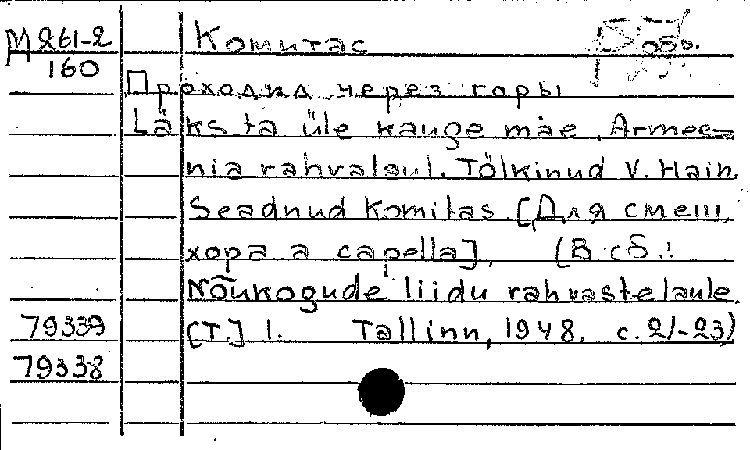 М 261-2 Комитас
160
Проходил через горы
Läks ta üle kauge mäe. Armee-
nia rahvalaul. Tõlkinud V. Hain.
Seadnud Komitas. [Для смеш.
хора a capella]. (В сб.:
Nõukogude liidu rahvastelaule.
79339 [T.] 1. Tallinn, 1948. с. 21-23)
79338